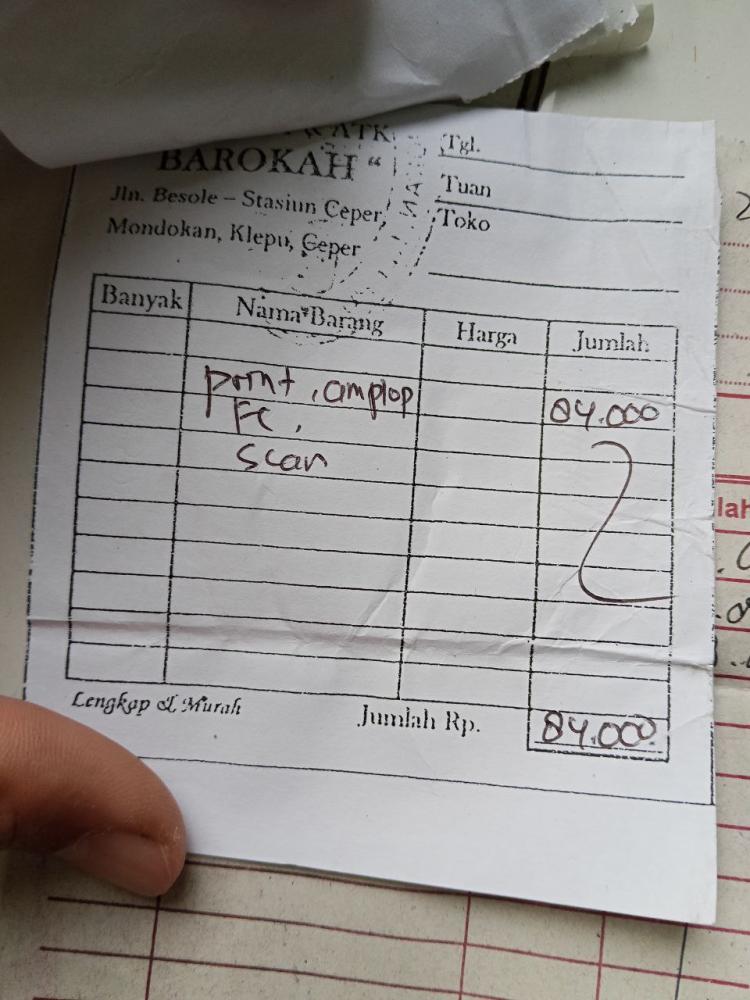 & ATK
BAROKAH "
Jln. Besole – Stasiun Ceper,
Mondokan, Klepu, Ceper
Tgl.
Tuan
Toko
Banyak Nama Barang Harga Jumlah
print, amplop 84.000
FC,
scan
Lengkap & Murah Jumlah Rp. 84.000
lah